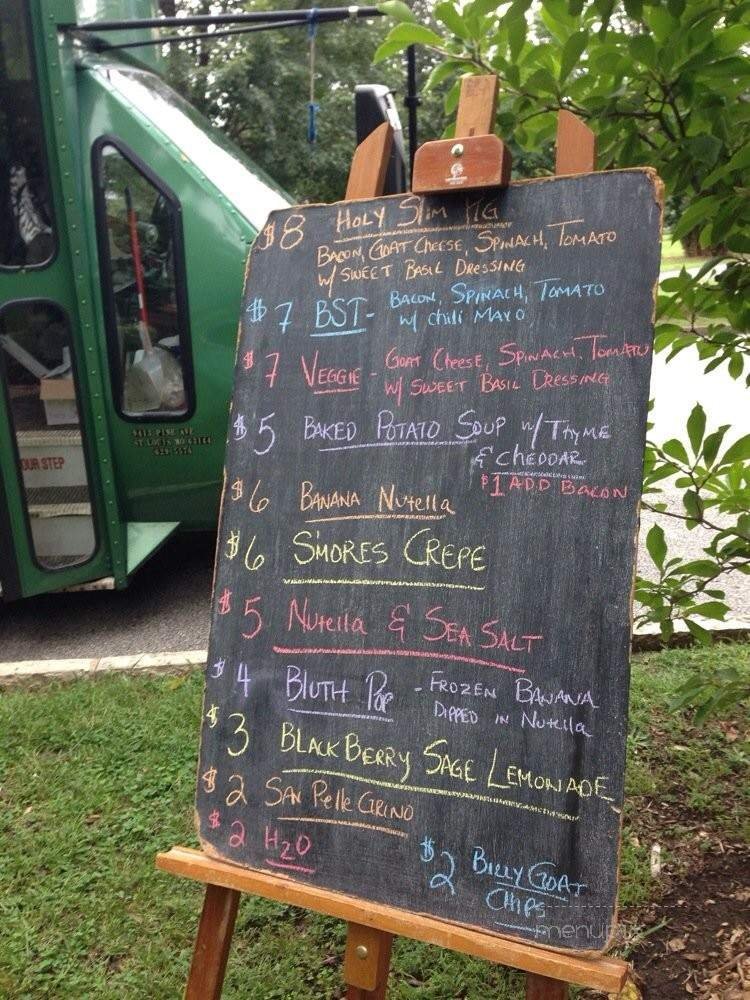 $8 HOLY SLIM PIG
BACON, GOAT CHEESE, SPINACH, TOMATO
W/ SWEET BASIL DRESSING
$7 BST- BACON, SPINACH, TOMATO
w/ chili MAYO
$7 VEGGIE - GOAT CHEESE, SPINACH, TOMATO
W/ SWEET BASIL DRESSING
$5 BAKED POTATO SOUP w/ THYME
& CHEDDAR
$1 ADD BACON
$6 BANANA Nutella
$6 S'MORES CREPE
$5 Nutella & SEA SALT
$4 BLUTH POP - FROZEN BANANA
DIPPED IN Nutella
$3 BLACK BERRY SAGE LEMONADE
$2 SAN PELLE GRINO
$2 H2O
$2 BILLY GOAT
CHIPS
OUR STEP
9413 PINE AVE
ST LOUIS MO 63144
629-5574
menupix